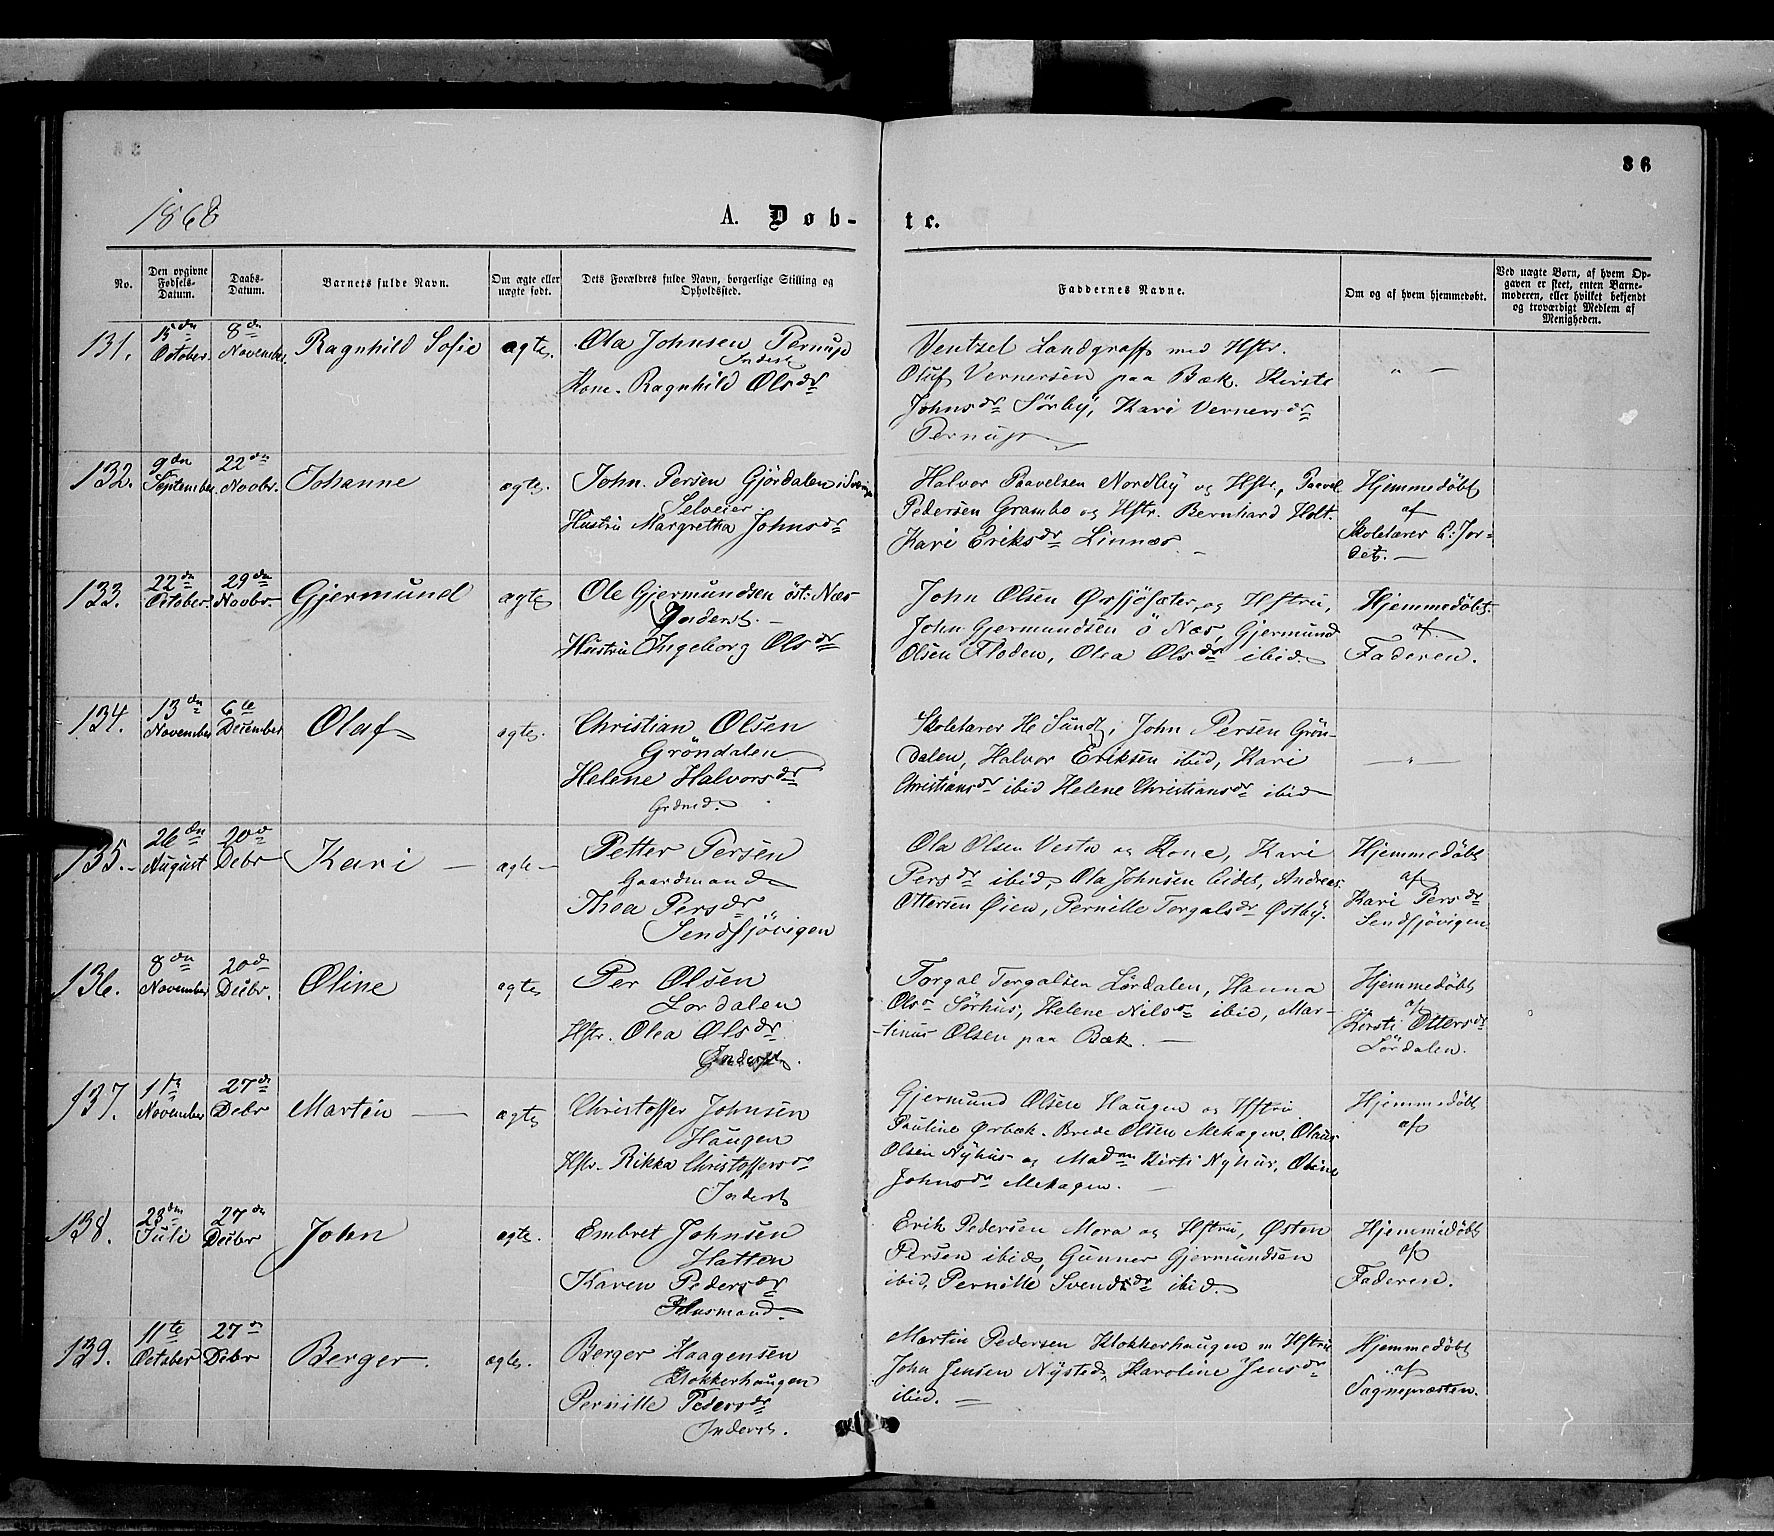 86
1868
A. Døb-
te.
No.
Den opgivne Fødsels-Datum.
Daabs-Datum.
Barnets fulde Navn.
Om ægte eller uægte født.
Dets Forældres fulde Navn, borgerlige Stilling og Opholdssted.
Faddernes Navne.
Om og af hvem hjemmedøbt.
Ved uægte Børn, af hvem Opgaven er skeet, enten Barnemoderen, eller hvilket bekjendt og troværdigt Medlem af Menigheden.
131. 15dn October. 8dn November. Ragnhild Sofie ægte.
Ola Johnsen Pernup
Inderst
Kone. Ragnhild Olsdr
Ventsel Landgraff med Hstr.
Oluf Vernersen paa Bæk. Kirste
Johnsdr Sørby, Kari Vernersdr
Pernup
" —
132. 9dn September 22dn Novbr. Johanne ægte.
John Persen Gjördalen i
Selveier
Hustru Margretha Johnsdr
Halvor Paavelsen Nordby og Hstr, Paavel
Pedersen Grambo og Hstr. Bernhard Holt.
Kari Eriksdr Linnæs. —
Hjemmedøbt
af
Skolelærer C: Jor-
det. —
133. 22dn October. 29dn Novbr. Gjermund ægte
Ole Gjermundsen öst: Næs
Inderst. —
Hustru Ingeborg Olsdr
John Olsen Øxsjösæter, og Hstru,
John Gjermundsen ö Næs, Gjermund
Olsen Floden, Olea Olsdr ibid.
Hjemmedöbt
af
Faderen.
134. 13dn November 6te December Olaf ægte.
Christian Olsen
Gröndalen
Helene Halvorsdr
Grdmd.
Skolelærer He Sundt, John Persen Grön-
dalen, Halvor Eriksen ibid, Kari
Christiansdr ibid Helene Christiansdr ibid
— " —
135. — 26dn August 20d Debr Kari — ægte —
Petter Persen
Gaardmand
Thea Persdr
Sendsjövigen
Ola Olsen Vesta og Kone, Kari
Persdr ibid, Ola Johnsen Eidet, Andreas
Ottersen Øien, Pernille Torgalsdr Østby.
Hjemmedøbt
af
Kari Persdr
Sendsjövigen
136. 8dn November 20d Decbr. Oline ægte
Per Olsen
Lordalen
Hstr. Olea Olsdr
Inderst.
Torgal Torgalsen Lördalen, Hanna
Olsdr Sörhus, Helene Nilsdr ibid, Mar-
-tinus Olsen paa Bæk. —
Hjemmedøbt
af
Kirsti Ottersdr
Lördalen.
137. 1te November 27d Debr Martin — ægte
Christoffer Johnsen
Haugen
Hstr. Rikka Christoffersdr
Inderst
Gjermund Olsen Haugen og Hstru
Pauline Ørbæk. Brede Olsen Mehagen. Olaus
Olsen Nyhus og Madm Kirsti Nyhus, Oline
Johnsdr Mehagen. —
Hjemmedöbt
af
138. 23dn Juli 27dn Decbr John ægte.
Embret Johnsen
Hatten
Karen Pedersdr
Husmand.
Erik Pedersen Mora og Hstru, Østen
Persen ibid, Gunner Gjermundsen
ibid, Pernille Svendsdr ibid.
Hjemmedøbt
af
Faderen.
139. 11te October 27d Debr Berger. ægte.
Berger Haagensen
Klokkerhaugen
Pernille Pedersdr
Inderst.
Martin Pedersen Klokkerhaugen m Hstru
John Jensen Nysted, Karoline Jensdr
ibid. —
Hjemmedøbt
af
Sognepræsten.